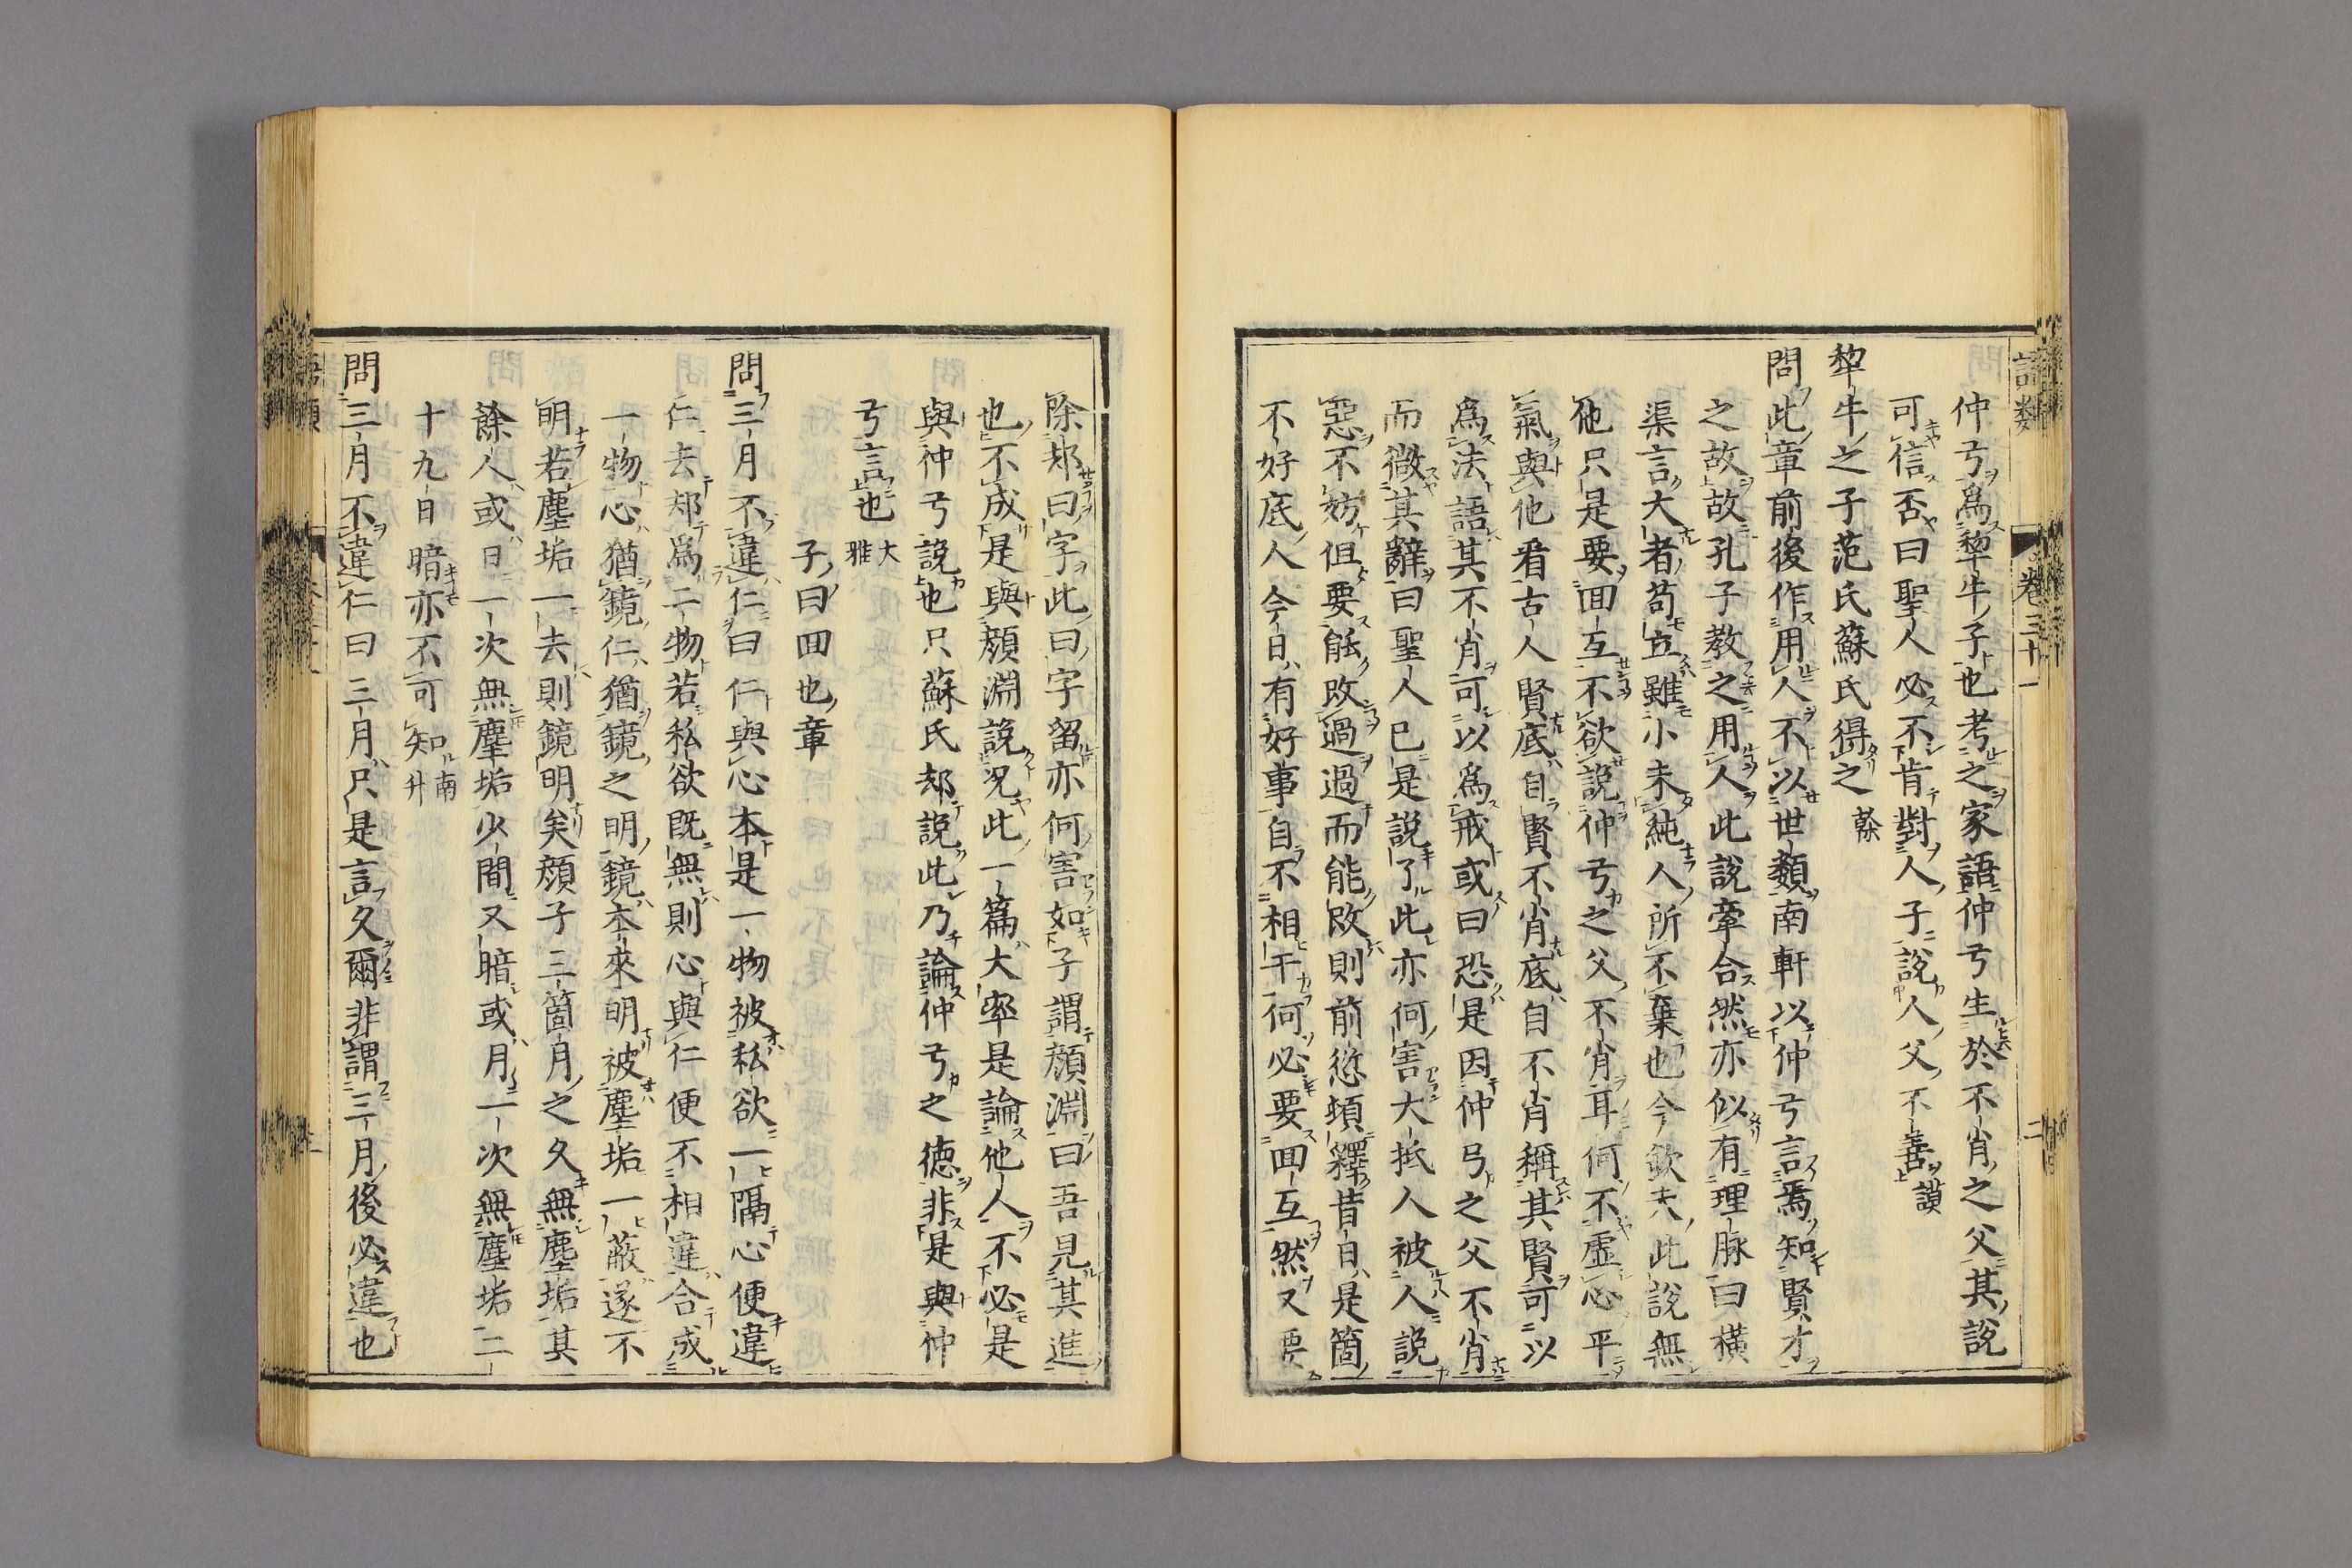 語類 卷三十一 二
仲弓爲犂牛子也考之家語仲弓生於不肖之父其說
可信否曰聖人必不肯對人子說人父不善 謨
犂牛之子范氏蘇氏得之 榦
問此章前後作用人不以世類南軒以仲弓言焉知賢才
之故故孔子教之用人此說牽合然亦似有理脉曰橫
渠言大者苟立雖小未純人所不棄也今欽夫此說無
他只是要回互不欲說仲弓之父不肖耳何不虛心平
氣與他看古人賢底自賢不肖底自不肖稱其賢可以
爲法語其不肖可以爲戒或曰恐是因仲弓之父不肖
而微其辭曰聖人已是說了此亦何害大抵人被人說
惡不妨但要能改過過而能改則前愆頓釋昔日是箇
不好底人今日有好事自不相干何必要回互然又要
除却曰字此曰字留亦何害如子謂顏淵曰吾見其進
也不成是與顏淵說况此一篇大率是論他人不必是
與仲弓說也只蘇氏却說此乃論仲弓之德非是與仲
弓言也 大雅
子曰回也章
問三月不違仁曰仁與心本是一物被私欲一隔心便違
仁去却爲二物若私欲既無則心與仁便不相違合成
一物心猶鏡仁猶鏡之明鏡本來明被塵垢一蔽遂不
明若塵垢一去則鏡明矣顏子三箇月之久無塵垢其
餘人或日一次無塵垢少間又暗或月一次無塵垢二
十九日暗亦不可知 南升
問三月不違仁曰三月只是言久爾非謂三月後必違也
語類